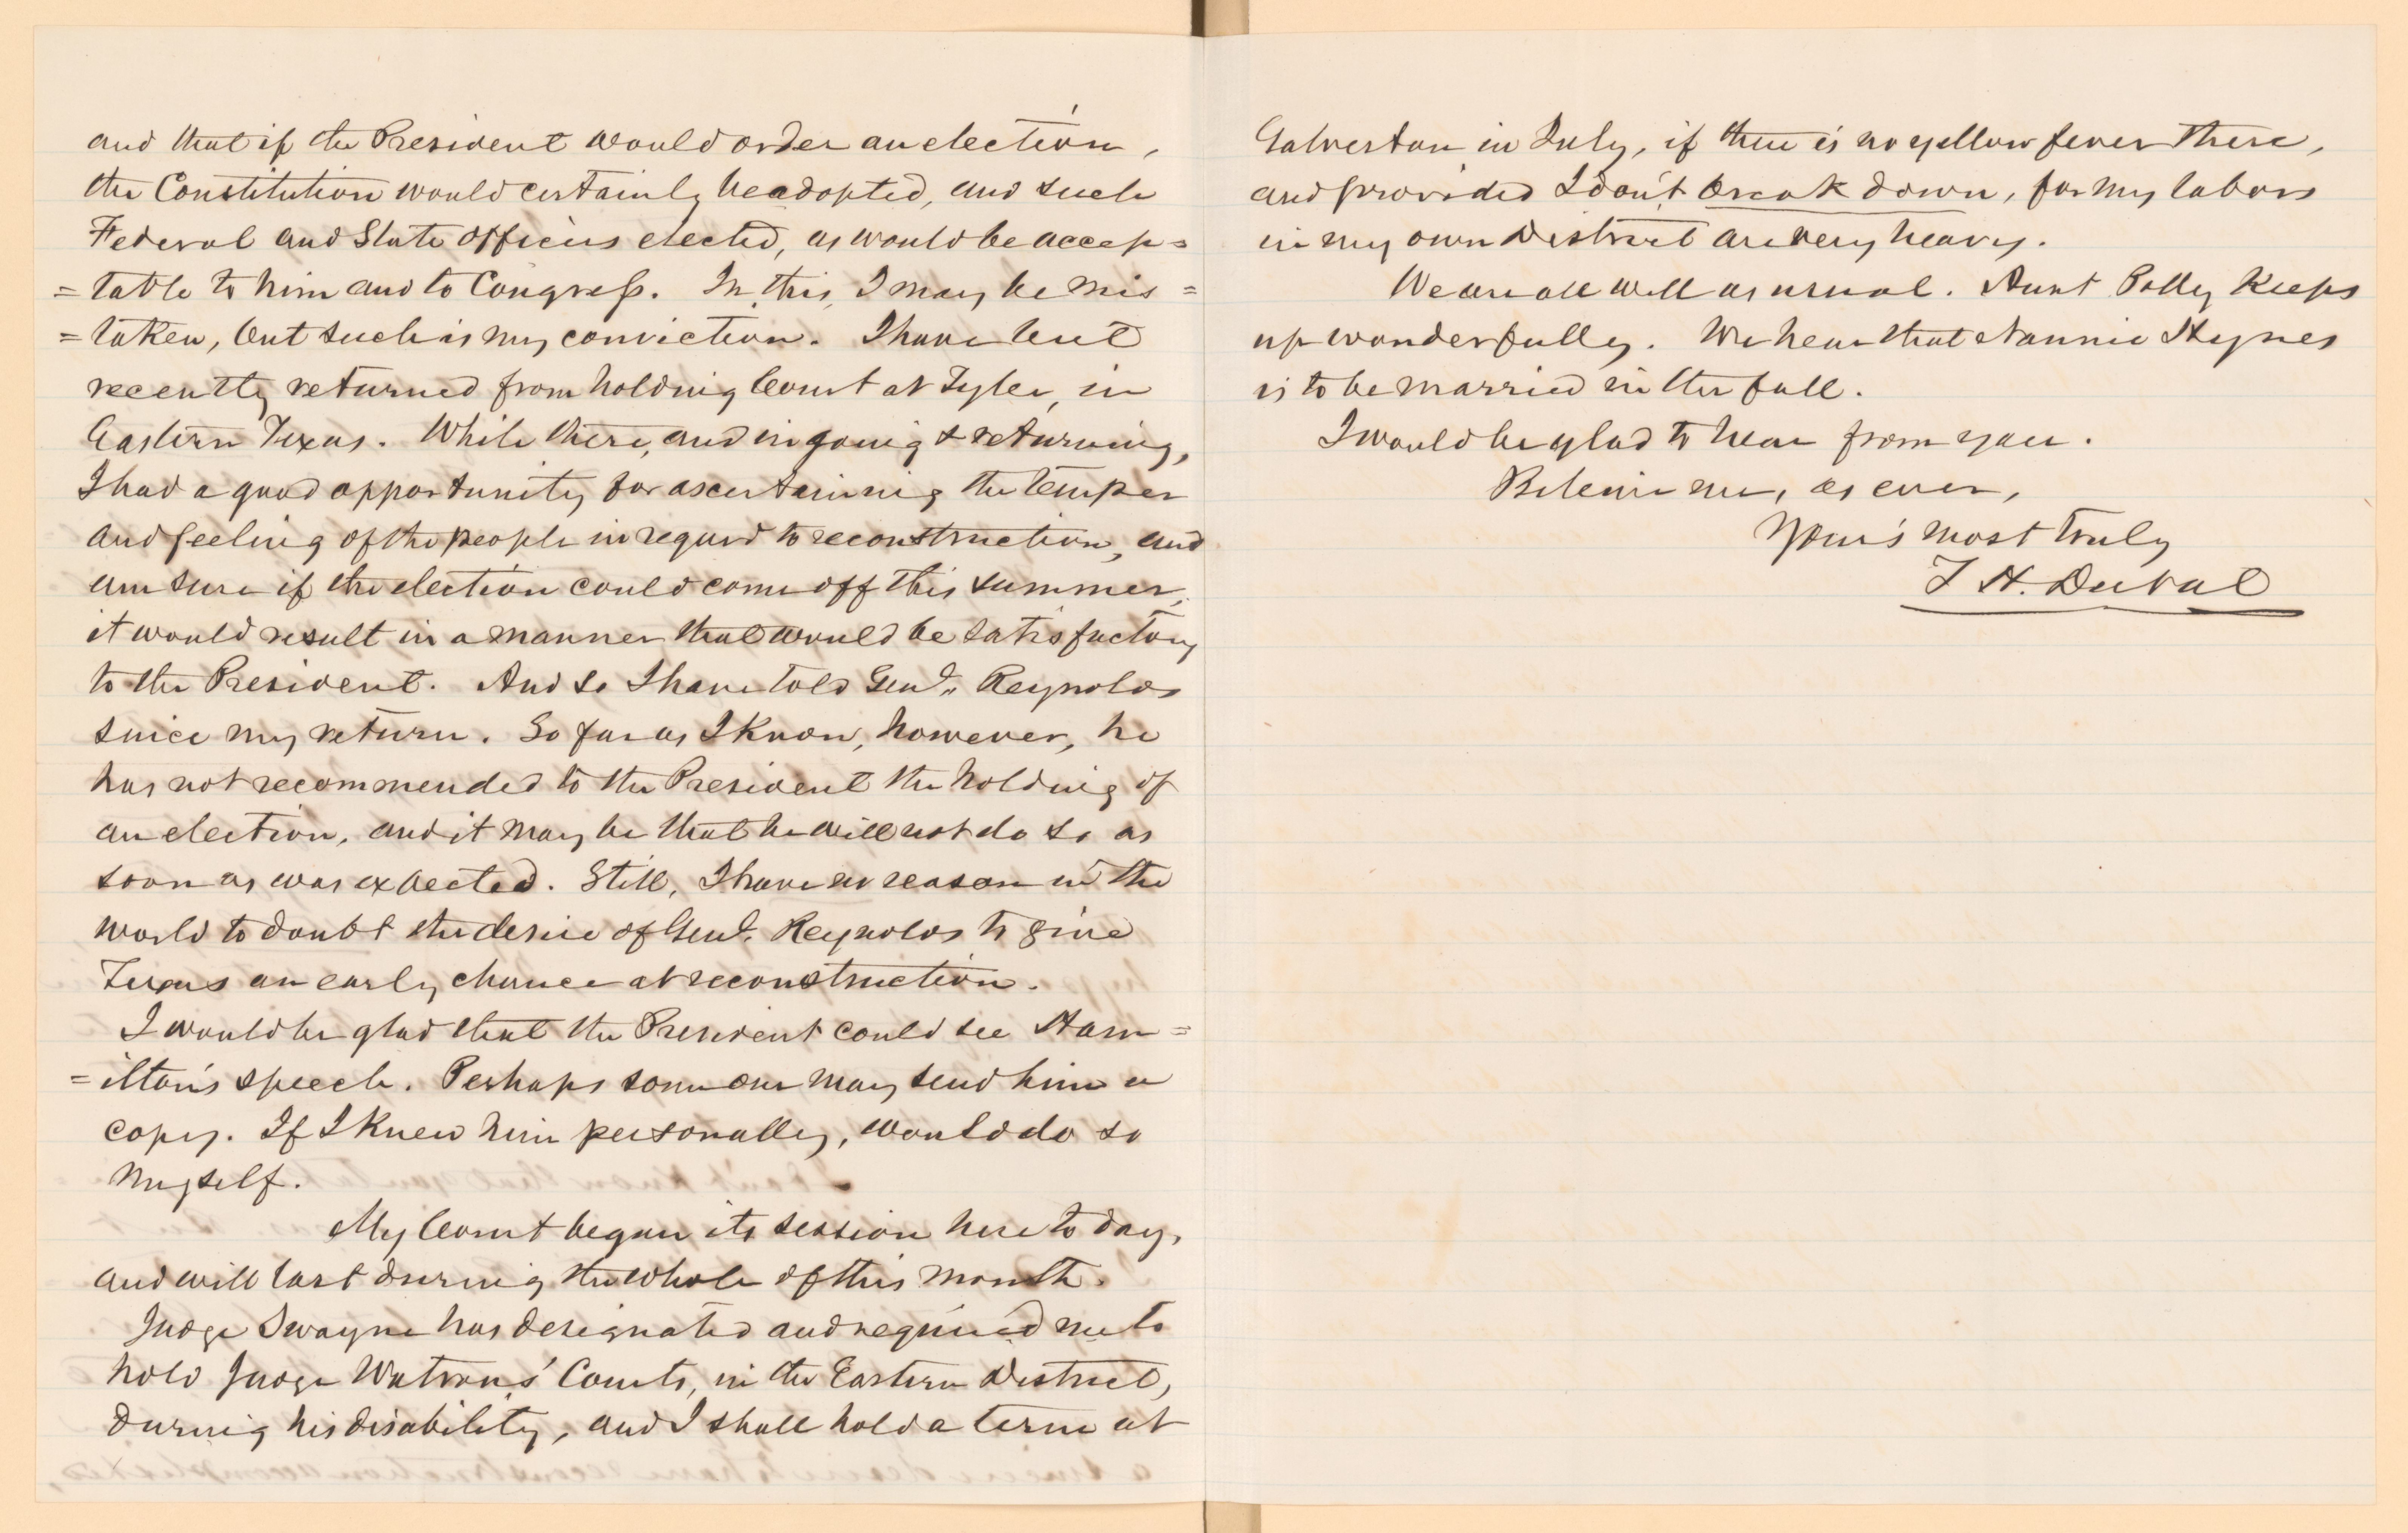 and that if the President would order an election,
the Constitution would certainly be adopted, and such
Federal and State officers elected, as would be accep=
=table to him and to Congress. In this, I may be mis=
=taken, but such is my conviction. I have but
recently returned from holding Court at Tyler, in
Eastern Texas. While there, and in going & returning,
I had a good opportunity for ascertaining the temper
and feeling of the people in regard to reconstruction, and
am sure if the election could come off this summer,
it would result in a manner that would be satisfactory
to the President. And so I have told Genl. Reynolds
since my return. So far as I know, however, he
has not recommended to the President the holding of
an election, and it may be that he will not do so as
soon as was expected. Still, I have no reason in the
world to doubt the desire of Genl. Reynolds to give
Texas an early chance at reconstruction.
I would be glad that the President could see Ham=
=ilton's speech. Perhaps some one may send him a
copy. If I knew him personally, would do so
myself.
My Court began its session here to day,
and will last during the whole of this month.
Judge Swayne has designated and required me to
hold Judge Watrous' Courts, in the Eastern District,
during his disability, and I shall hold a term at
Galveston in July, if there is no yellow fever there,
and provided I don't break down, for my labors
in my own District are very heavy.
We are all well as usual. Aunt Polly keeps
up wonderfully. We hear that Nannie Haynes
is to be married in the fall.
I would be glad to hear from you.
Believe me, as ever,
Your's most truly
T H. Duval